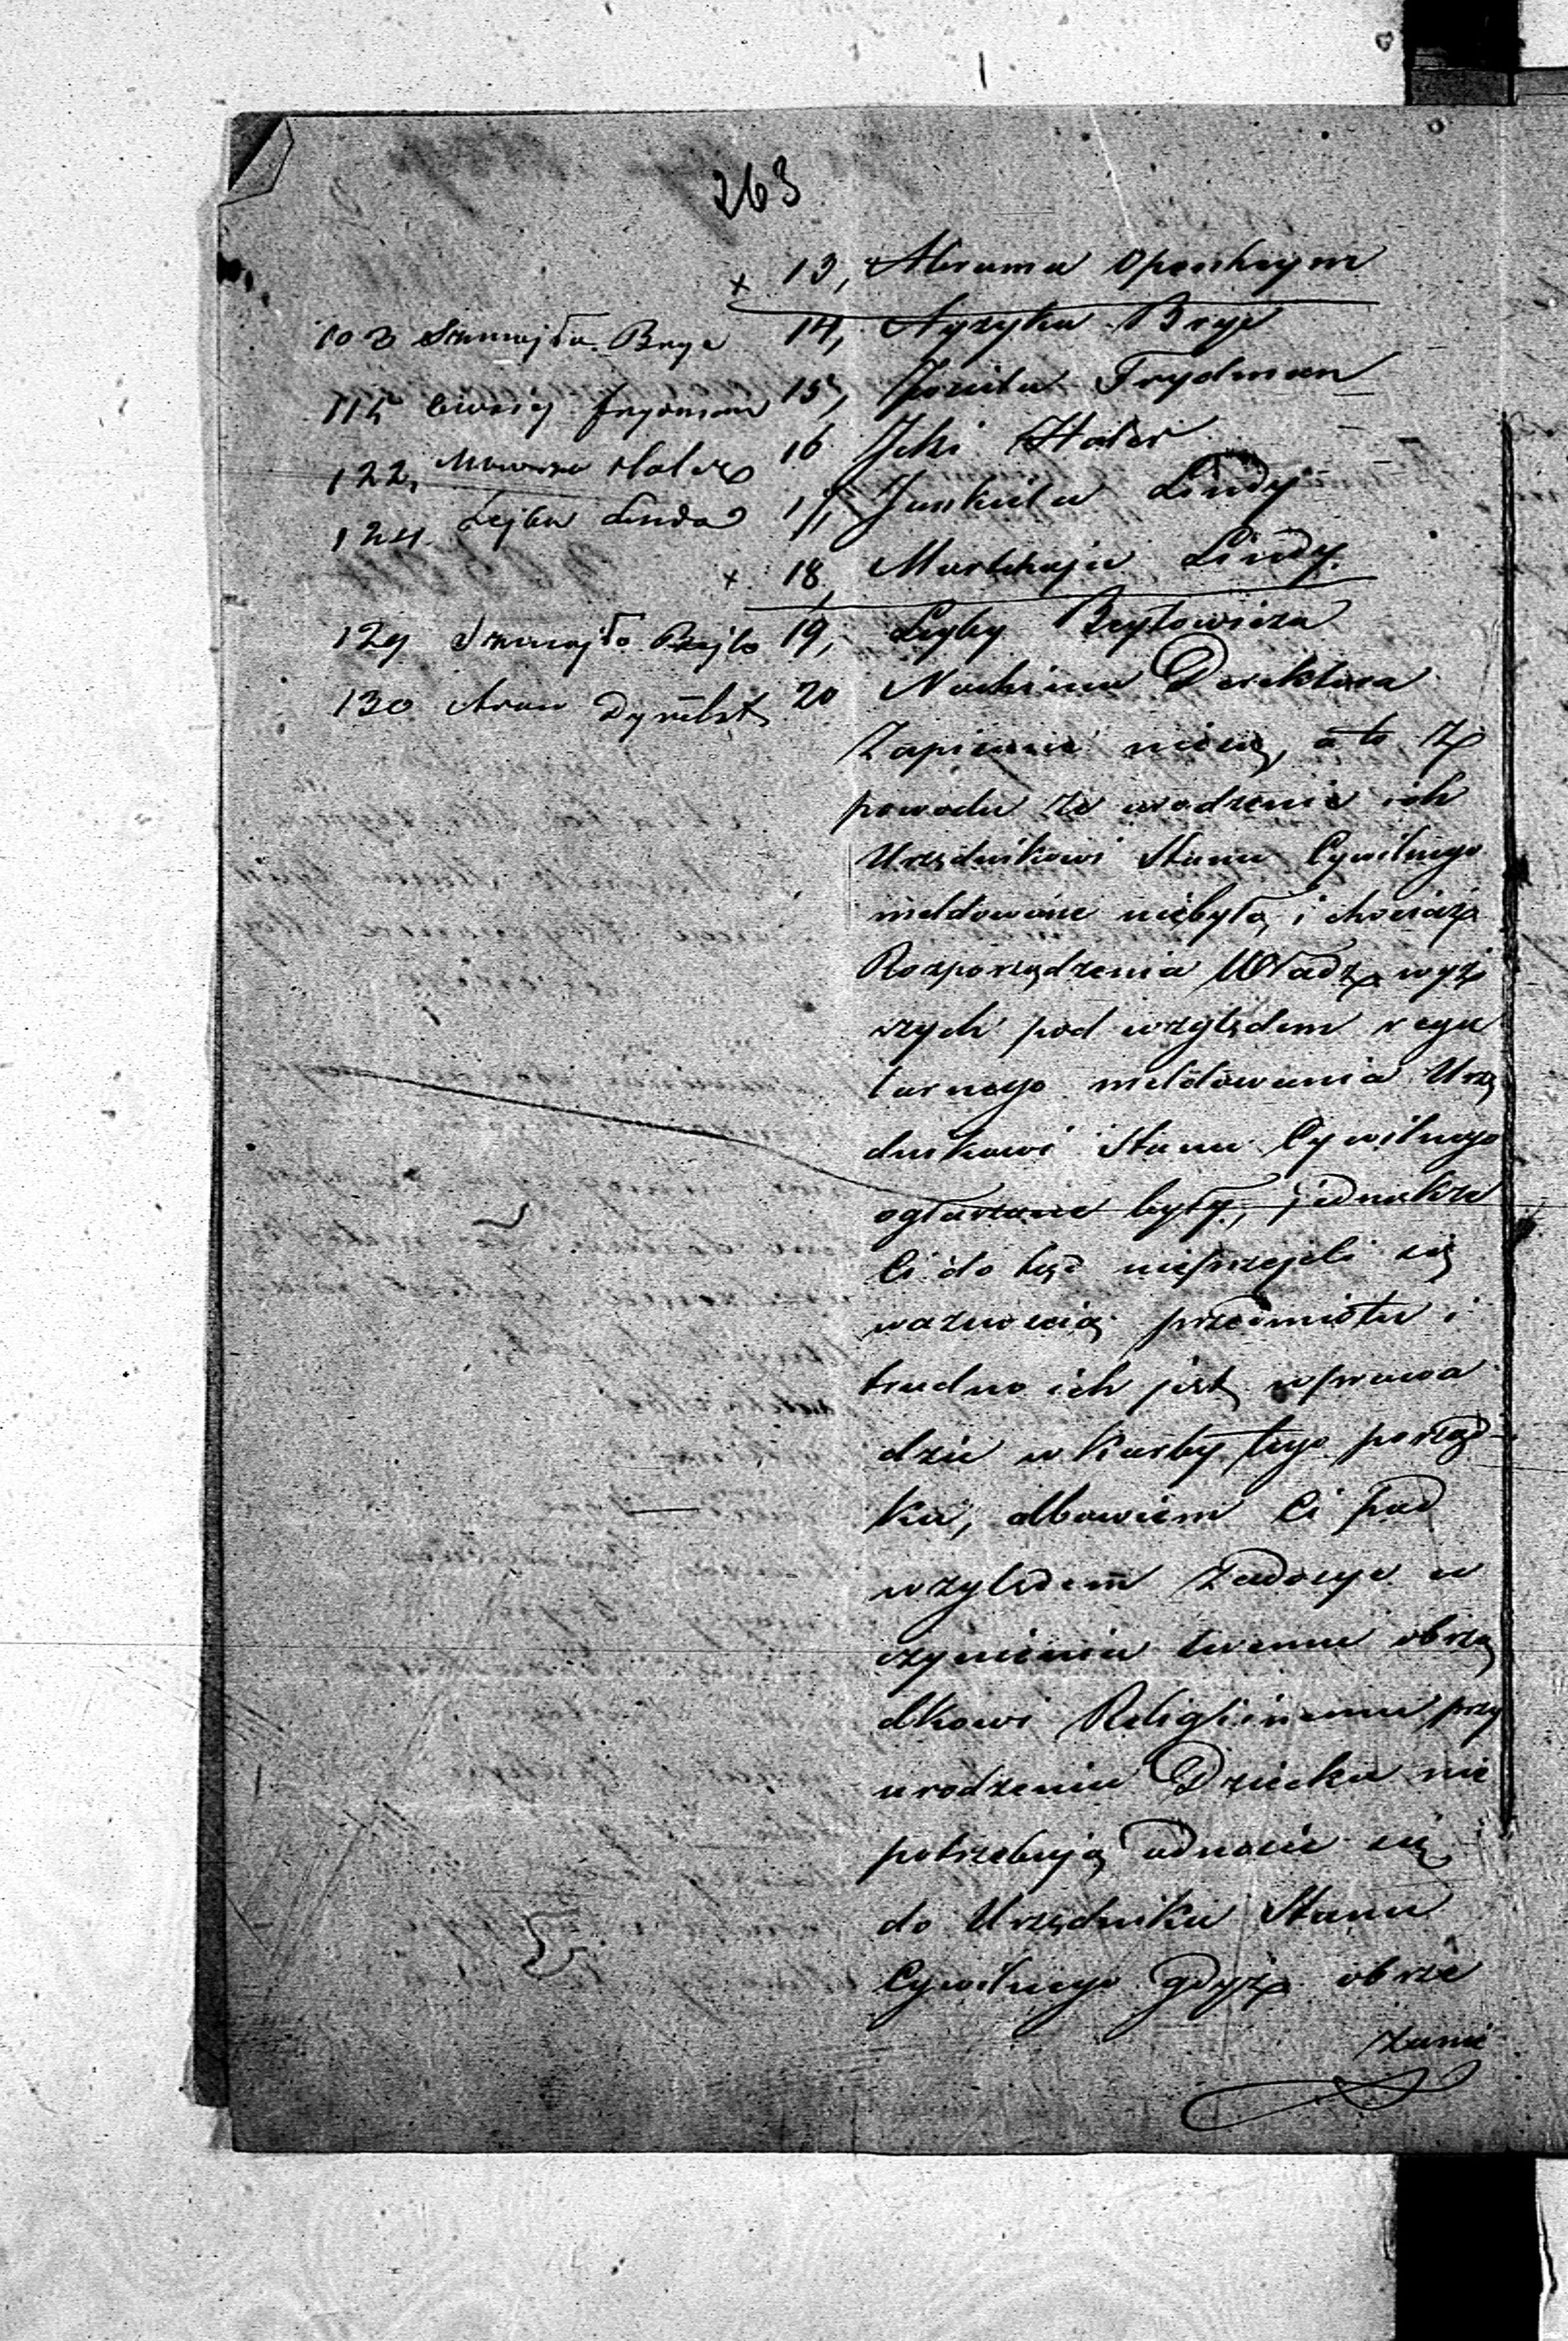 263
13, Abrama Openheym
103 Szmujła Bryc 14, Ayzyka Bryc
115 Frydman 15, Joziela Frydman
122, Haler 16 Icki Haler
124 Lejba Linda 17, Jankiela Lindy
18, Mortchaja Lindy
129 Szmujło 19, Leyby Beytowicza
130 Aron Dyrekt 20 Nachima Derektora
Zapisane nie są, a to z
powodu że urodzenie ich
Urzędnikowi Stanu Cywilnego
meldowane niebyło, i chociaż
Rozporządzenia Władz wyż
szych pod względem regu
larnego meldowania Urzę
dnikowi Stanu Cywilnego
ogłaszane były, jednakże
Ci do tąd nieprzejeli się
ważnością przedmiotu i
trudno ich jest wprowa
dzić w karby tego porząd
ku, albowiem Ci pod
względem zadosyć u
czynienia swemu obrzą
dkowi Religiinemu przy
urodzeniu Dziecka nie
potrzebują odnosić się
do Urzędnika Stanu
Cywilnego gdyż obrze
zanie